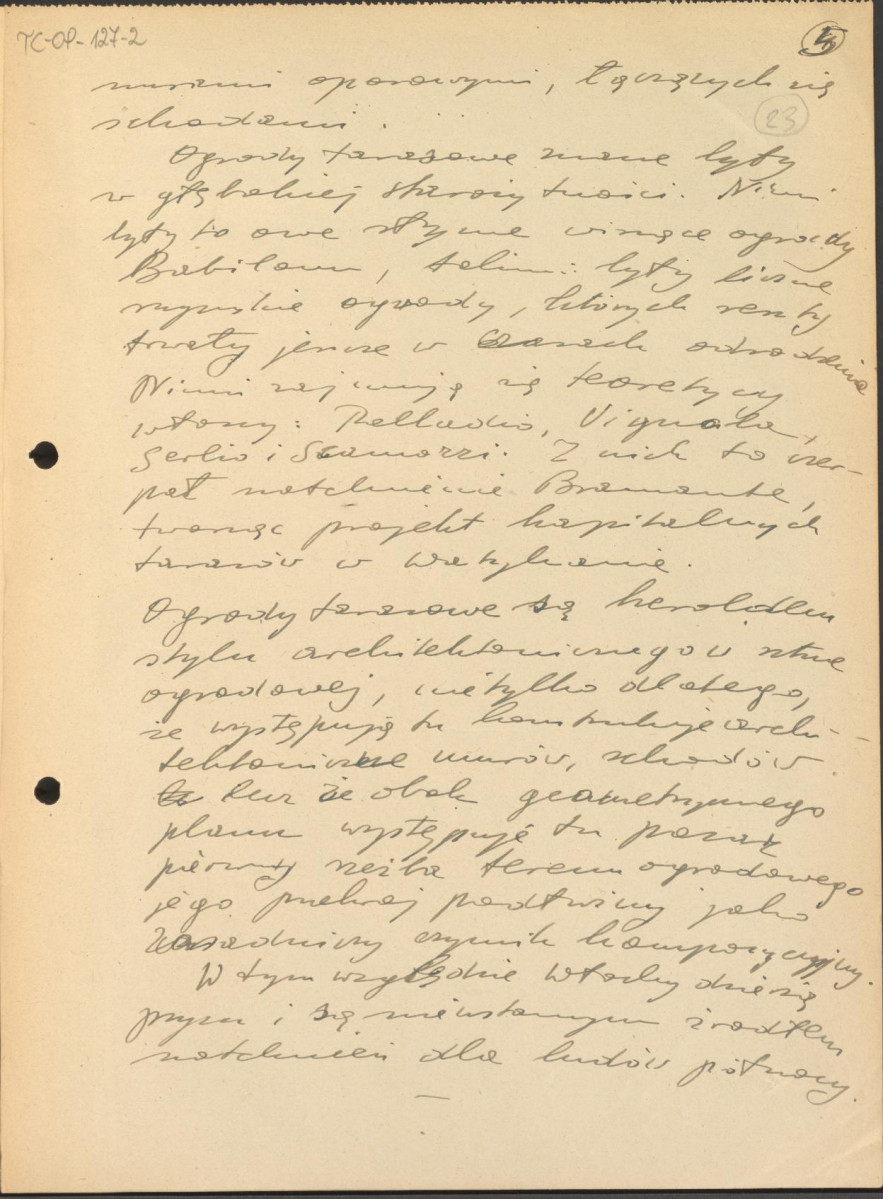 TC-OP-127-2
23
murami oporowymi, łączących się
schodami.
Ogrody tarasowe znane były
w głębokiej starożytności. Nimi
były to owe słynne wiszące ogrody
Babilonu, takimi były liczne
rzymskie ogrody, których resztę
trwały jeszcze w czasach odrodzenia
Nimi zajmują się teoretycy
włoscy: Palladio, Vignola,
Serlio i Scamozzi. Z nich to czer-
pał natchnienie Bramante,
tworząc projekt kapitalnych
tarasów w Watykanie.
Ogrody tarasowe są heroldem
stylu architektonicznego w sztuce
ogrodowej, nie tylko dlatego,
że występują tu konstrukcje archi-
tektoniczne murów, schodów
lecz że obok geometrycznego
planu występuje tu poraz
pierwszy rzeźba terenu ogrodowego
jego przekrój podłużny jako
zasadniczy czynnik kompozycyjny.
W tym względzie Włochy dzierżą
prym i są nieustannym źródłem
natchnień dla ludów północy.